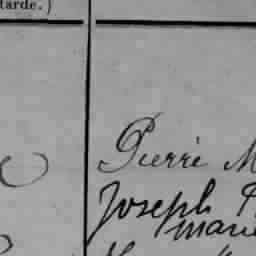 tarde.)
Pierre M
Joseph
marie